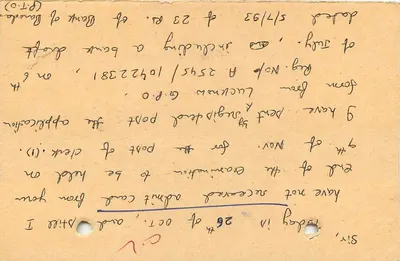 Sir,
Today is 26th of Oct., and still I
have not received admit card from your
end of examination to be held on
9th of Nov. for the post of clerk. (1).
I have sent by registered post the application
form from Lucknow G.P.O.
Reg. No/o A 2545/10422381, on 6th
of July, including a bank draft
dated 5/7/93 of 23 Rs. of Bank of Baroda
(P.T.O)